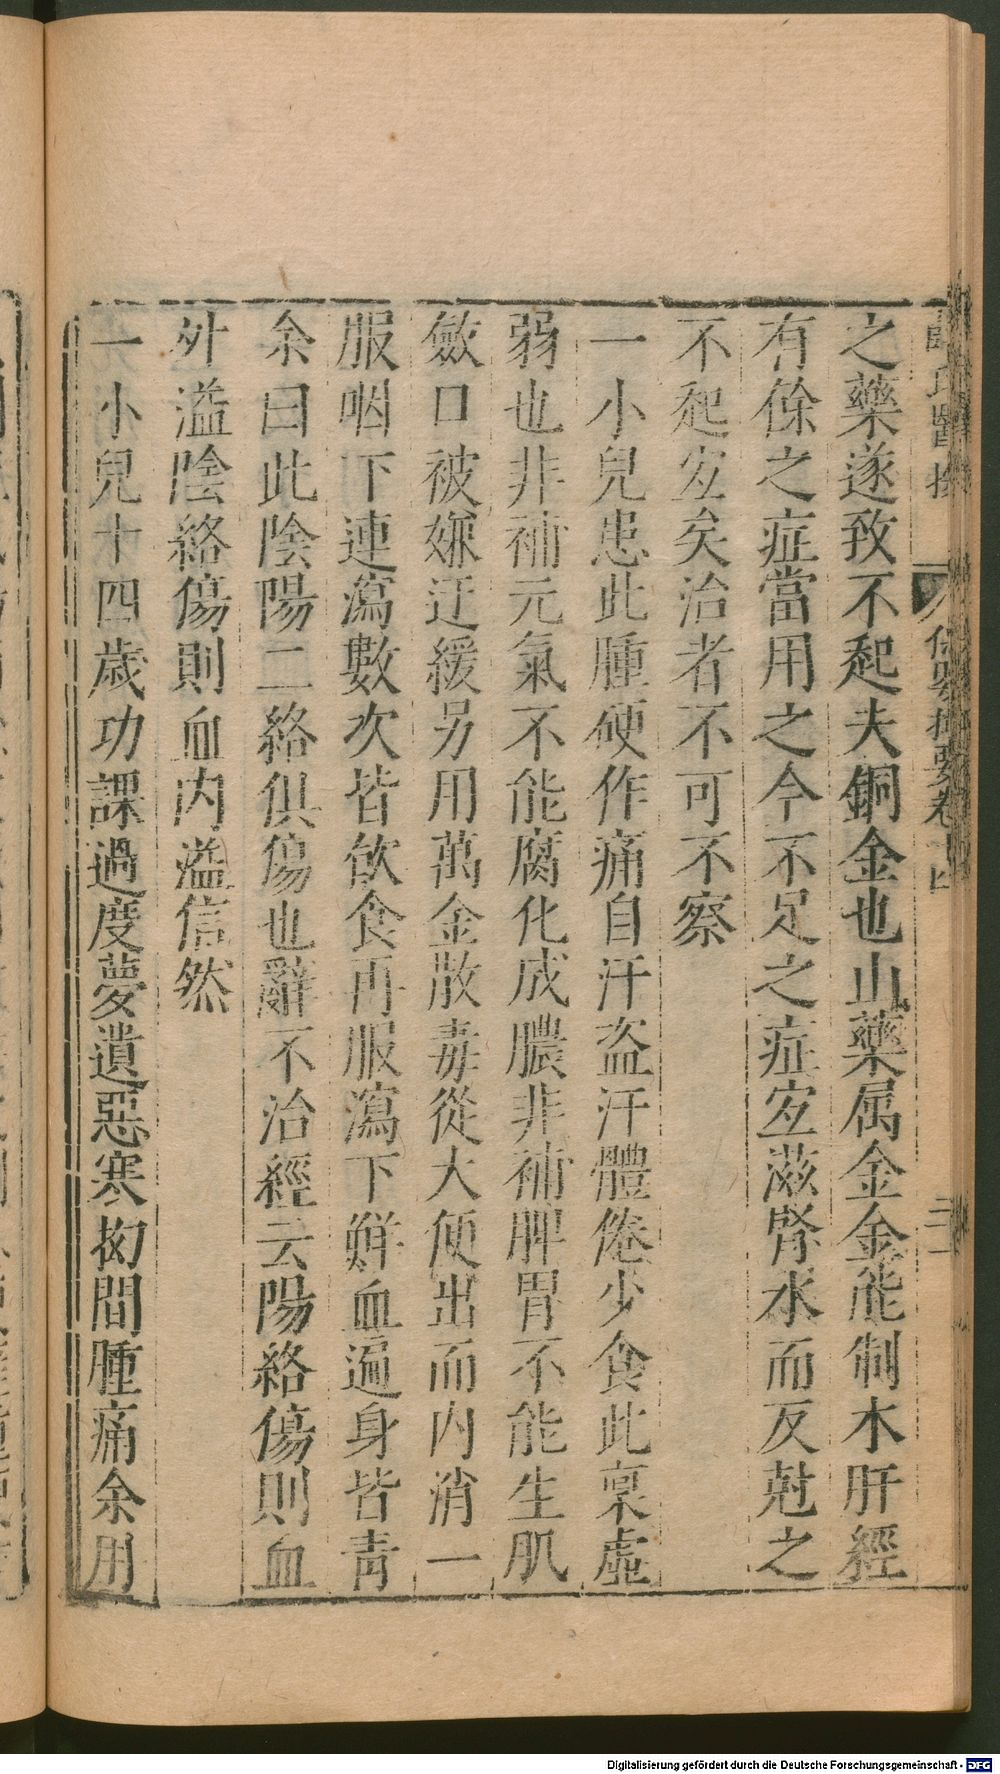 之藥遂致不起夫銅金也山藥属金金能制木肝經
有餘之症當用之今不足之症宐滋腎水而反尅之
不起宐矣治者不可不察
一小兒患此腫硬作痛自汗盗汗體倦少食此稟虛
弱也非補元氣不能腐化成膿非補脾胃不能生肌
斂口被嫌迂緩另用萬金散毒從大便出而内消一
服咽下連瀉數次皆飲食再服瀉下鮮血遍身皆青
余曰此陰陽二絡俱傷也辭不治經云陽絡傷則血
外溢陰絡傷則血内溢信然
一小兒十四歲功課過度夢遺惡寒㧓間腫痛余用
Digitalisierung gefördert durch die Deutsche Forschungsgemeinschaft - DFG